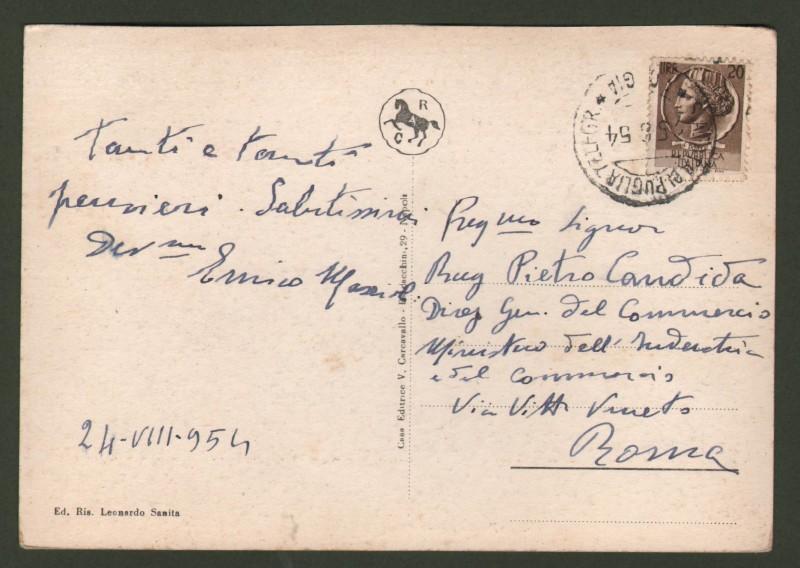 Tanti e tanti
pensieri. Salutissimi
Dev mo
Enrico
24-VIII-954
Ed. Ris. Leonardo Sanita
Casa Editrice V. Carcavallo - 29 - Napoli
R
C
LIRE 20
REPVBBLICA
ITALIANA
54
PUGLIA TELEGR. *
Preg mo Signor
Rag Pietro Candida
Direz Gen. del Commercio
Ministero dell'Industria
e del Commercio
Via Vitt Veneto
Roma